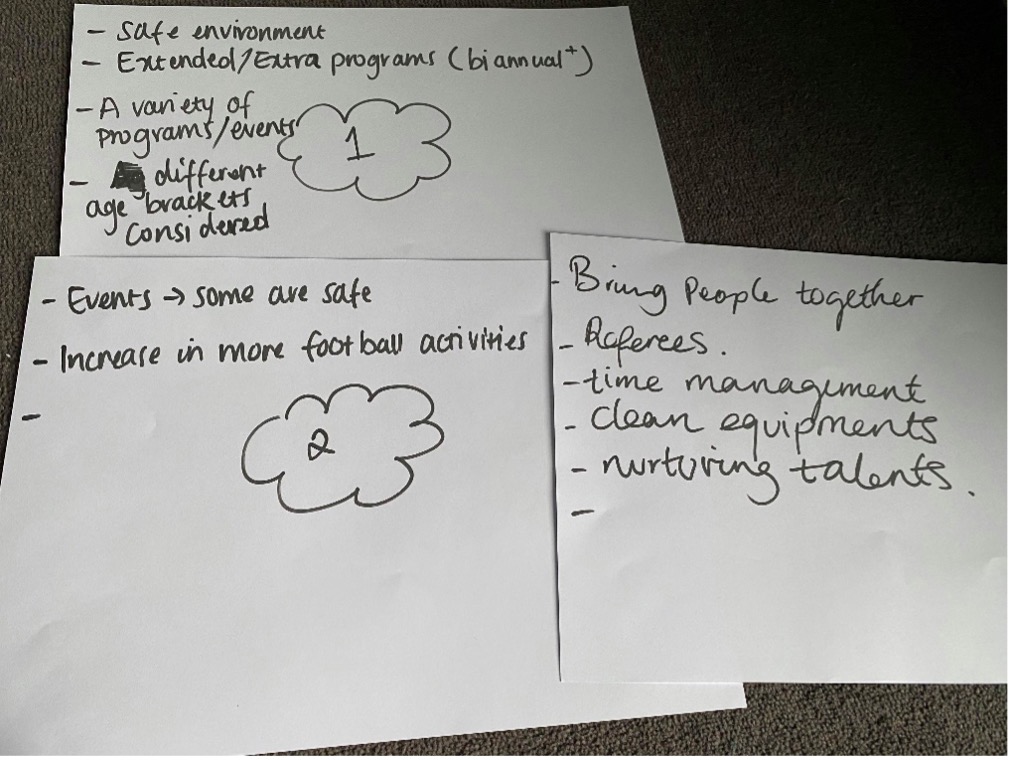 - Safe environment
- Extended/Extra programs (biannual+)
- A variety of
programs/events
1
- different
age brackets
considered
- Events → some are safe
- Increase in more football activities
-
2
- Bring People together
- Referees.
- time management
- clean equipments
- nurturing talents.
-